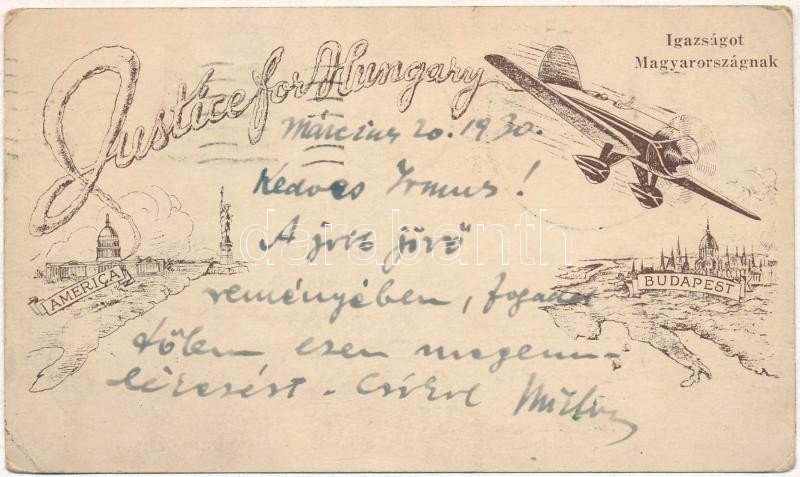 Justice for Hungary
Igazságot
Magyarországnak
Március 20. 1930.
Kedves Irmus!
A jobb jövő
reményében, fogadd
tőlem ezen megem-
lékezést. Csókol
AMERICA
BUDAPEST
darabanth